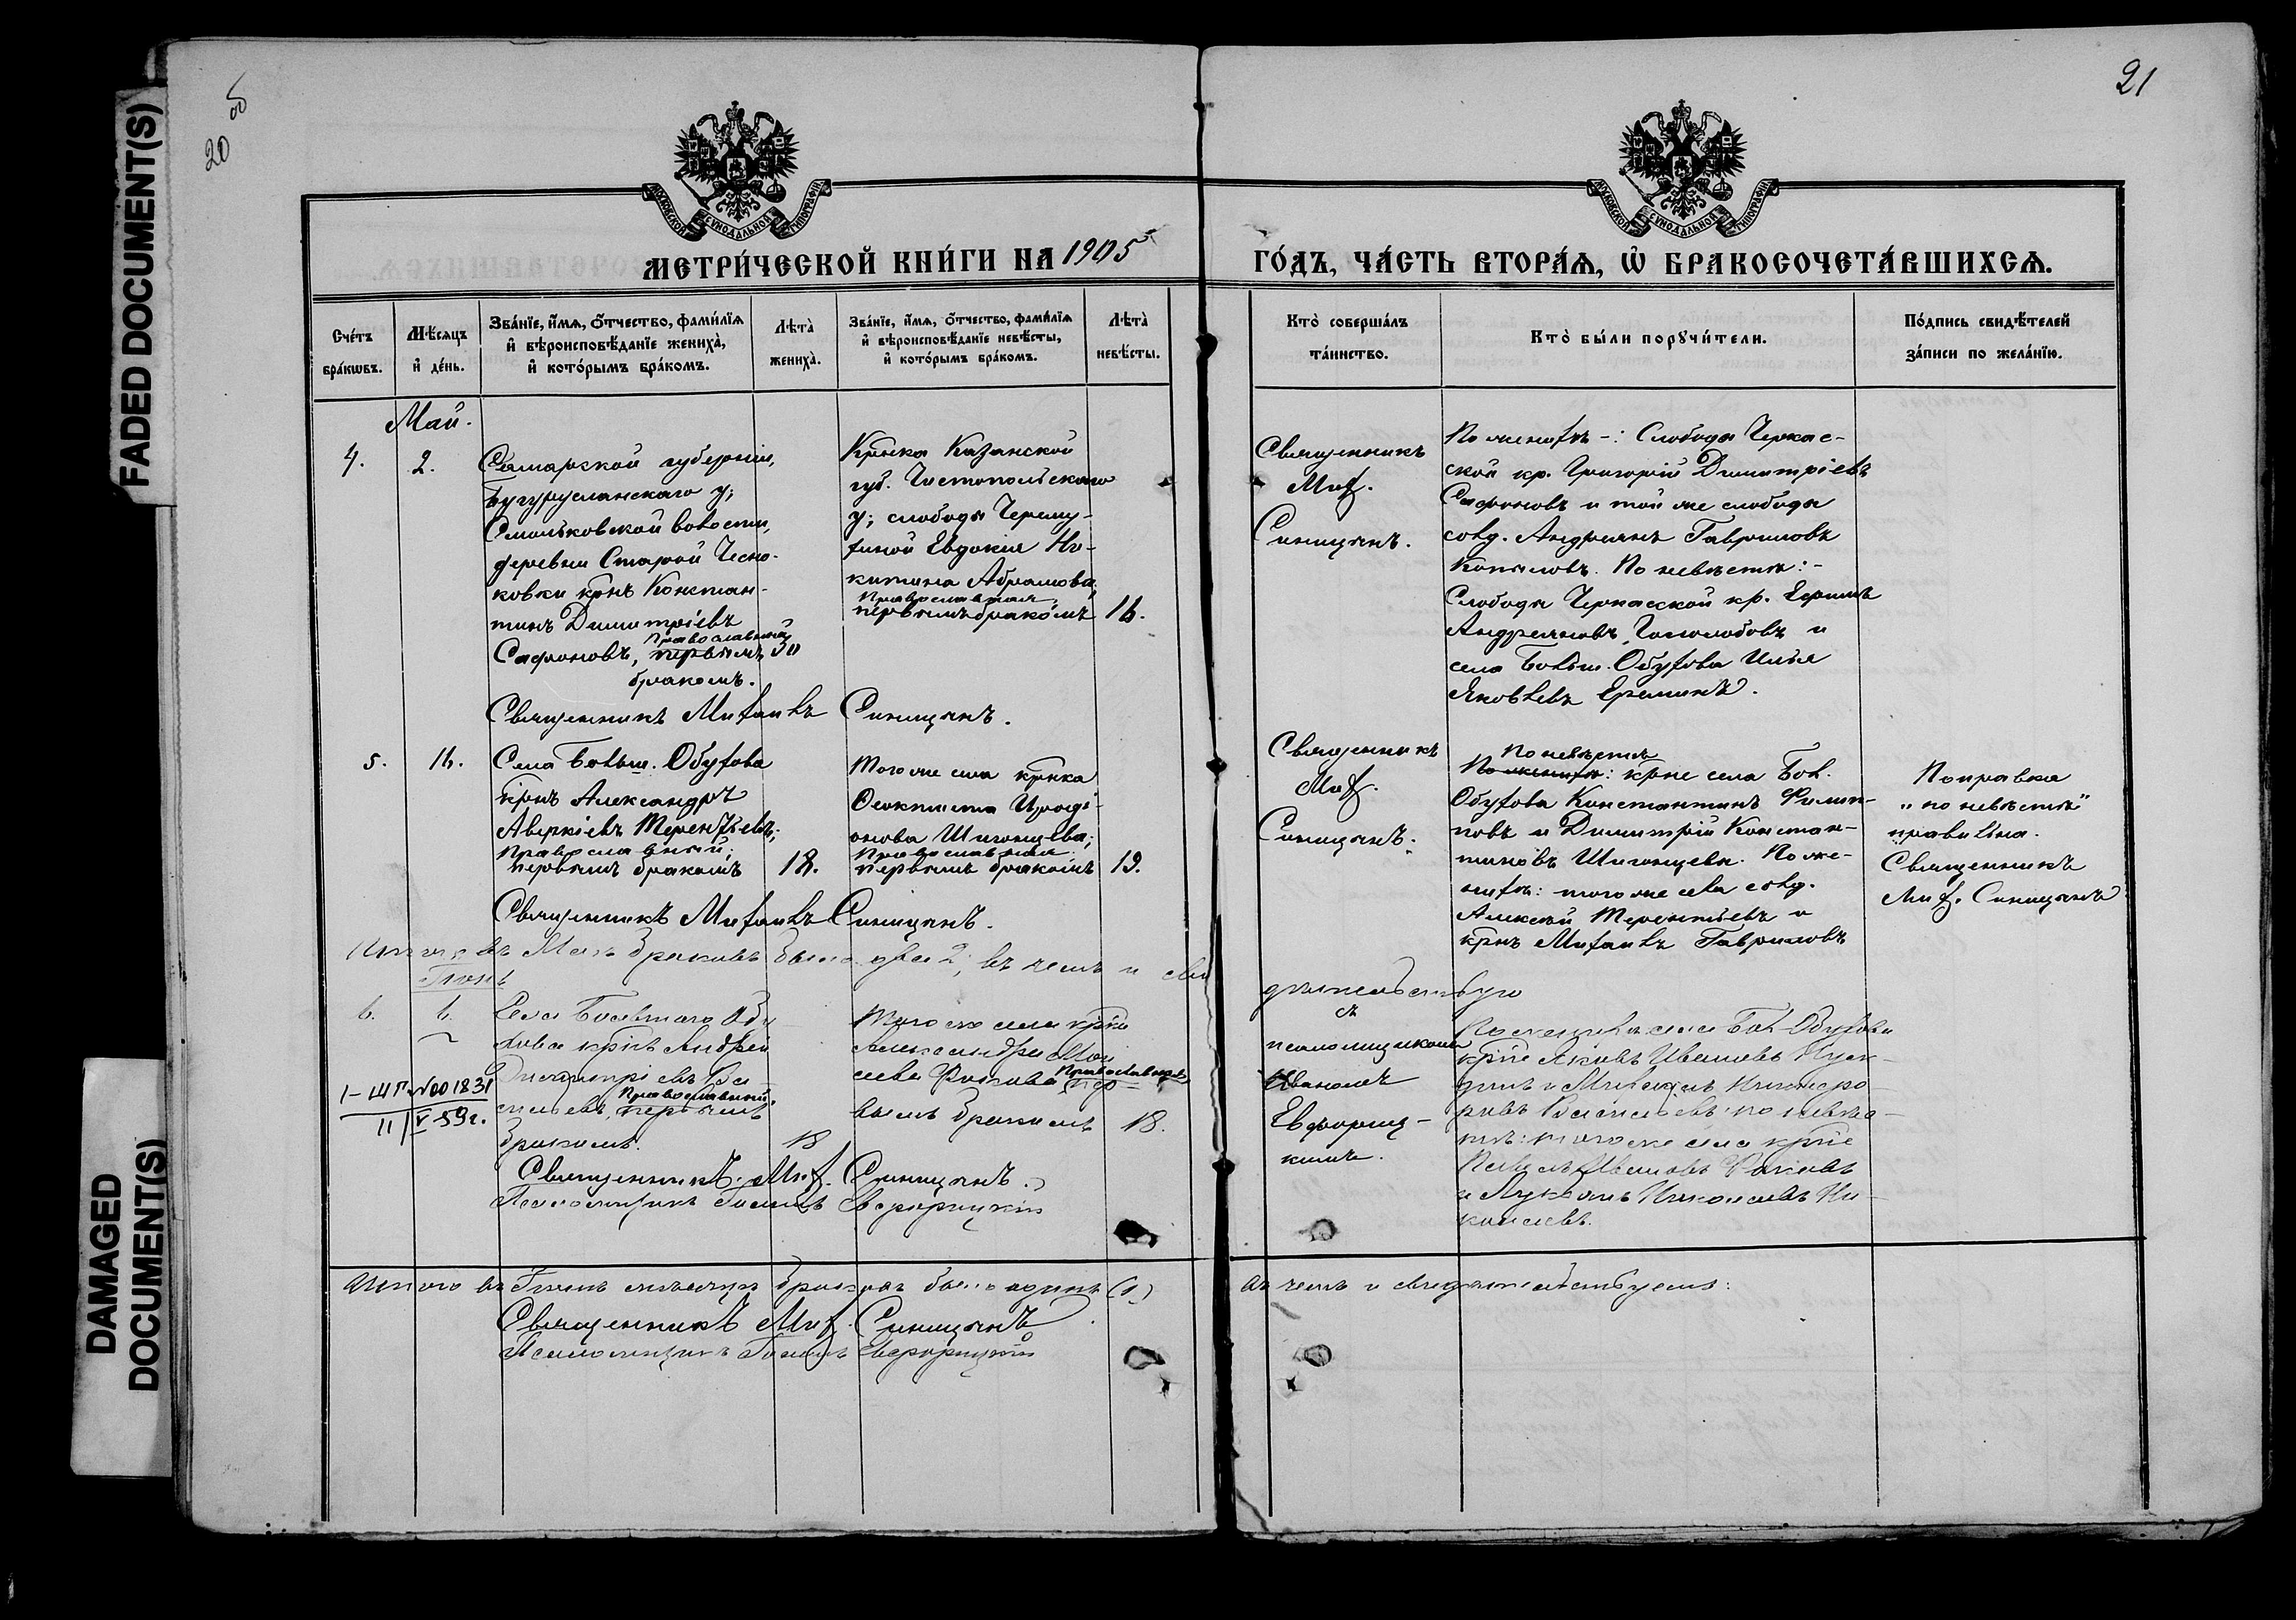 FADED DOCUMENT(S)
DAMAGED
DOCUMENT(S)
20 об
21
МОСКОВСКОЙ СУНОДАЛЬНОЙ ТИПОГРАФІИ
МОСКОВСКОЙ СУНОДАЛЬНОЙ ТИПОГРАФІИ
МЕТРИ́ЧЕСКОЙ КНИ́ГИ НА 1905
ГО́ДЪ, ЧА́СТЬ ВТОРА́Ѧ, Ѡ҆ БРАКОСОЧЕТА́ВШИХСѦ.
Сче́тъ
бра́кѡвъ.
Мѣ́сяцъ
и҆ де́нь.
Зва́нїе, и҆́мѧ, о҆́тчество, фами́лїѧ
и҆ вѣроисповѣ́данїе жениха̀,
и҆ кото́рымъ бра́комъ.
Лѣта̀
жениха̀.
Зва́нїе, и҆́мѧ, о҆́тчество, фами́лїѧ
и҆ вѣроисповѣ́данїе невѣ́сты,
и҆ кото́рымъ бра́комъ.
Лѣта̀
невѣ́сты.
Кто̀ соверша́лъ
та́инство.
Кто̀ бы́ли порꙋчи́тели.
По́дпись свидѣ́телей
за́писи по жела́нїю.
Май.
4.
2.
Самарской губерніи,
Бугурусланскаго у;
Смольковской волости,
деревни Старой Чесно-
ковки крнъ Констан-
тинъ Димитріевъ
православный
Сафоновъ, первымъ 30
бракомъ.
Крнка Казанской
губ. Чистопольскаго
у; слободы Черему-
Евдокія Ни-
китина Абрамова,
православная
первымъ бракомъ 16.
Священникъ
Мих.
Синицынъ.
По женихѣ -: Слободы Черкас-
ской кр. Григорій Димитріевъ
Сафоновъ и той же слободы
солд. Андреянъ Гавриловъ
По невѣстѣ: -
Слободы Черкасской кр. Ефимъ
Андреяновъ и
села Больш. Обухова Илья
Яковлевъ Ереминъ.
Священникъ Михаилъ Синицынъ.
5.
16.
Села Больш. Обухова
крнъ Александръ
Аверкіевъ Терентьевъ;
православный;
первымъ бракомъ 18.
Того же села крнка
Феоктиста Ироді-
онова Шигонцева;
православная
первымъ бракомъ 19.
Священникъ
Мих.
Синицынъ.
По невѣстѣ
По женихѣ: крне села Бол.
Обухова Константинъ Филип-
повъ и Димитрій Констан-
тиновъ Шигонцевы. По же-
нихѣ: того же села солд.
Алексѣй Терентьевъ и
крнъ Михаилъ Гавриловъ
Поправка
„по невѣстѣ"
правильна.
Священникъ
Мих. Синицынъ
Священникъ Михаилъ Синицынъ.
Итого въ Маѣ браковъ было два 2, въ чемъ и сви
дѣтельствую
Іюнь
6.
6.
Села Большаго Обу
хова крнъ Андрей
Димитріевъ Ва
православный
сильевъ, первымъ
бракомъ. 18
I-ШГ №001831
11/V-59г.
Того же села крнка
Александра Мои
сеева православная
пер-
вымъ бракомъ 18.
съ
псаломщикомъ
Иваномъ
Евфориц-
кимъ.
По женихѣ села Бол. Обухова
крне Яковъ Ивановъ
и Михаилъ Никифо
ровъ Васильевъ; по невѣс-
тѣ: того же села крне
Павелъ Ивановъ
и Лукьянъ Николаевъ Ни-
колаевъ.
Священникъ Мих. Синицынъ.
Псаломщикъ Іоаннъ Евфорицкій
Итого въ Іюнѣ мѣсяцѣ браковъ было одинъ (1) въ чемъ и свидѣтельствуемъ:
Священникъ Мих. Синицынъ
Псаломщикъ Іоаннъ Евфорицкій